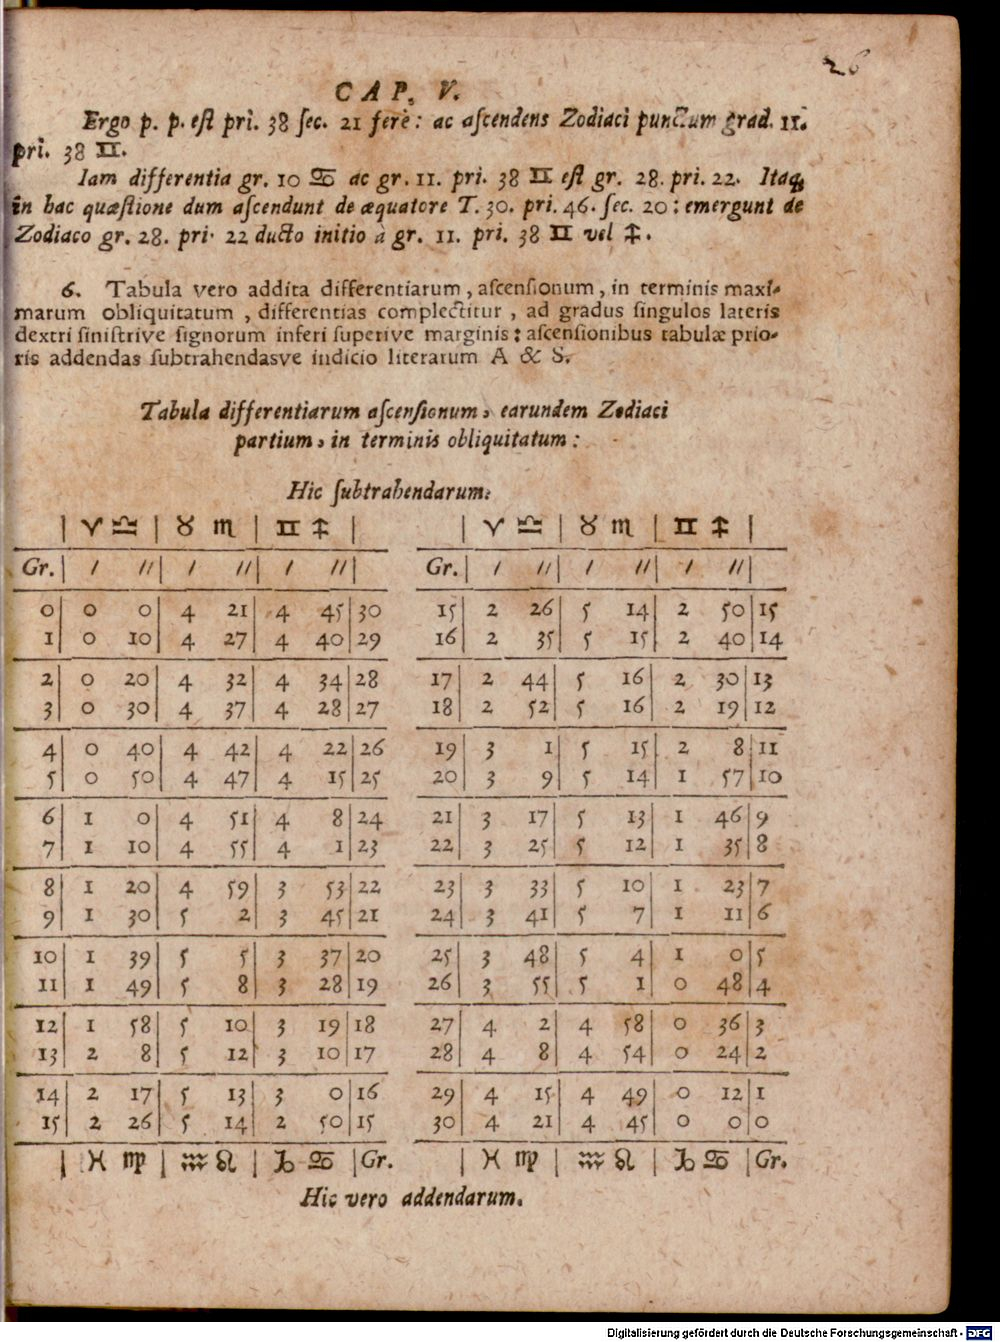 26
CAP. V.
Ergo p. p. est pri. 38 sec. 21 ferè: ac ascendens Zodiaci punctum grad. 11.
pri. 38 ♊.
Iam differentia gr. 10 ♋ ac gr. 11. pri. 38 ♊ est gr. 28. pri. 22. Itaq
in hac quæstione dum ascendunt de æquatore T. 30. pri. 46. sec. 20: emergunt de
Zodiaco gr. 28. pri. 22 ducto initio à gr. 11. pri. 38 ♊ vel ♐.
6. Tabula vero addita differentiarum, ascensionum, in terminis maxi-
marum obliquitatum, differentias complectitur, ad gradus singulos lateris
dextri sinistrive signorum inferi superive marginis: ascensionibus tabulæ prio-
ris addendas subtrahendasve indicio literarum A & S.
Tabula differentiarum ascensionum, earundem Zodiaci
partium, in terminis obliquitatum:
Hic subtrahendarum:
| ♈ ♎ | ♉ ♏ | ♊ ♐ | | ♈ ♎ | ♉ ♏ | ♊ ♐ |
Gr. | ′ ″ | ′ ″ | ′ ″ | Gr. | ′ ″ | ′ ″ | ′ ″ |
0 | 0 0 | 4 21 | 4 45 | 30 15 | 2 26 | 5 14 | 2 50 | 15
1 | 0 10 | 4 27 | 4 40 | 29 16 | 2 35 | 5 15 | 2 40 | 14
2 | 0 20 | 4 32 | 4 34 | 28 17 | 2 44 | 5 16 | 2 30 | 13
3 | 0 30 | 4 37 | 4 28 | 27 18 | 2 52 | 5 16 | 2 19 | 12
4 | 0 40 | 4 42 | 4 22 | 26 19 | 3 1 | 5 15 | 2 8 | 11
5 | 0 50 | 4 47 | 4 15 | 25 20 | 3 9 | 5 14 | 1 57 | 10
6 | 1 0 | 4 51 | 4 8 | 24 21 | 3 17 | 5 13 | 1 46 | 9
7 | 1 10 | 4 55 | 4 1 | 23 22 | 3 25 | 5 12 | 1 35 | 8
8 | 1 20 | 4 59 | 3 53 | 22 23 | 3 33 | 5 10 | 1 23 | 7
9 | 1 30 | 5 2 | 3 45 | 21 24 | 3 41 | 5 7 | 1 11 | 6
10 | 1 39 | 5 5 | 3 37 | 20 25 | 3 48 | 5 4 | 1 0 | 5
11 | 1 49 | 5 8 | 3 28 | 19 26 | 3 55 | 5 1 | 0 48 | 4
12 | 1 58 | 5 10 | 3 19 | 18 27 | 4 2 | 4 58 | 0 36 | 3
13 | 2 8 | 5 12 | 3 10 | 17 28 | 4 8 | 4 54 | 0 24 | 2
14 | 2 17 | 5 13 | 3 0 | 16 29 | 4 15 | 4 49 | 0 12 | 1
15 | 2 26 | 5 14 | 2 50 | 15 30 | 4 21 | 4 45 | 0 0 | 0
| ♓ ♍ | ♒ ♌ | ♑ ♋ | Gr. | ♓ ♍ | ♒ ♌ | ♑ ♋ | Gr.
Hic vero addendarum.
Digitalisierung gefördert durch die Deutsche Forschungsgemeinschaft - DFG